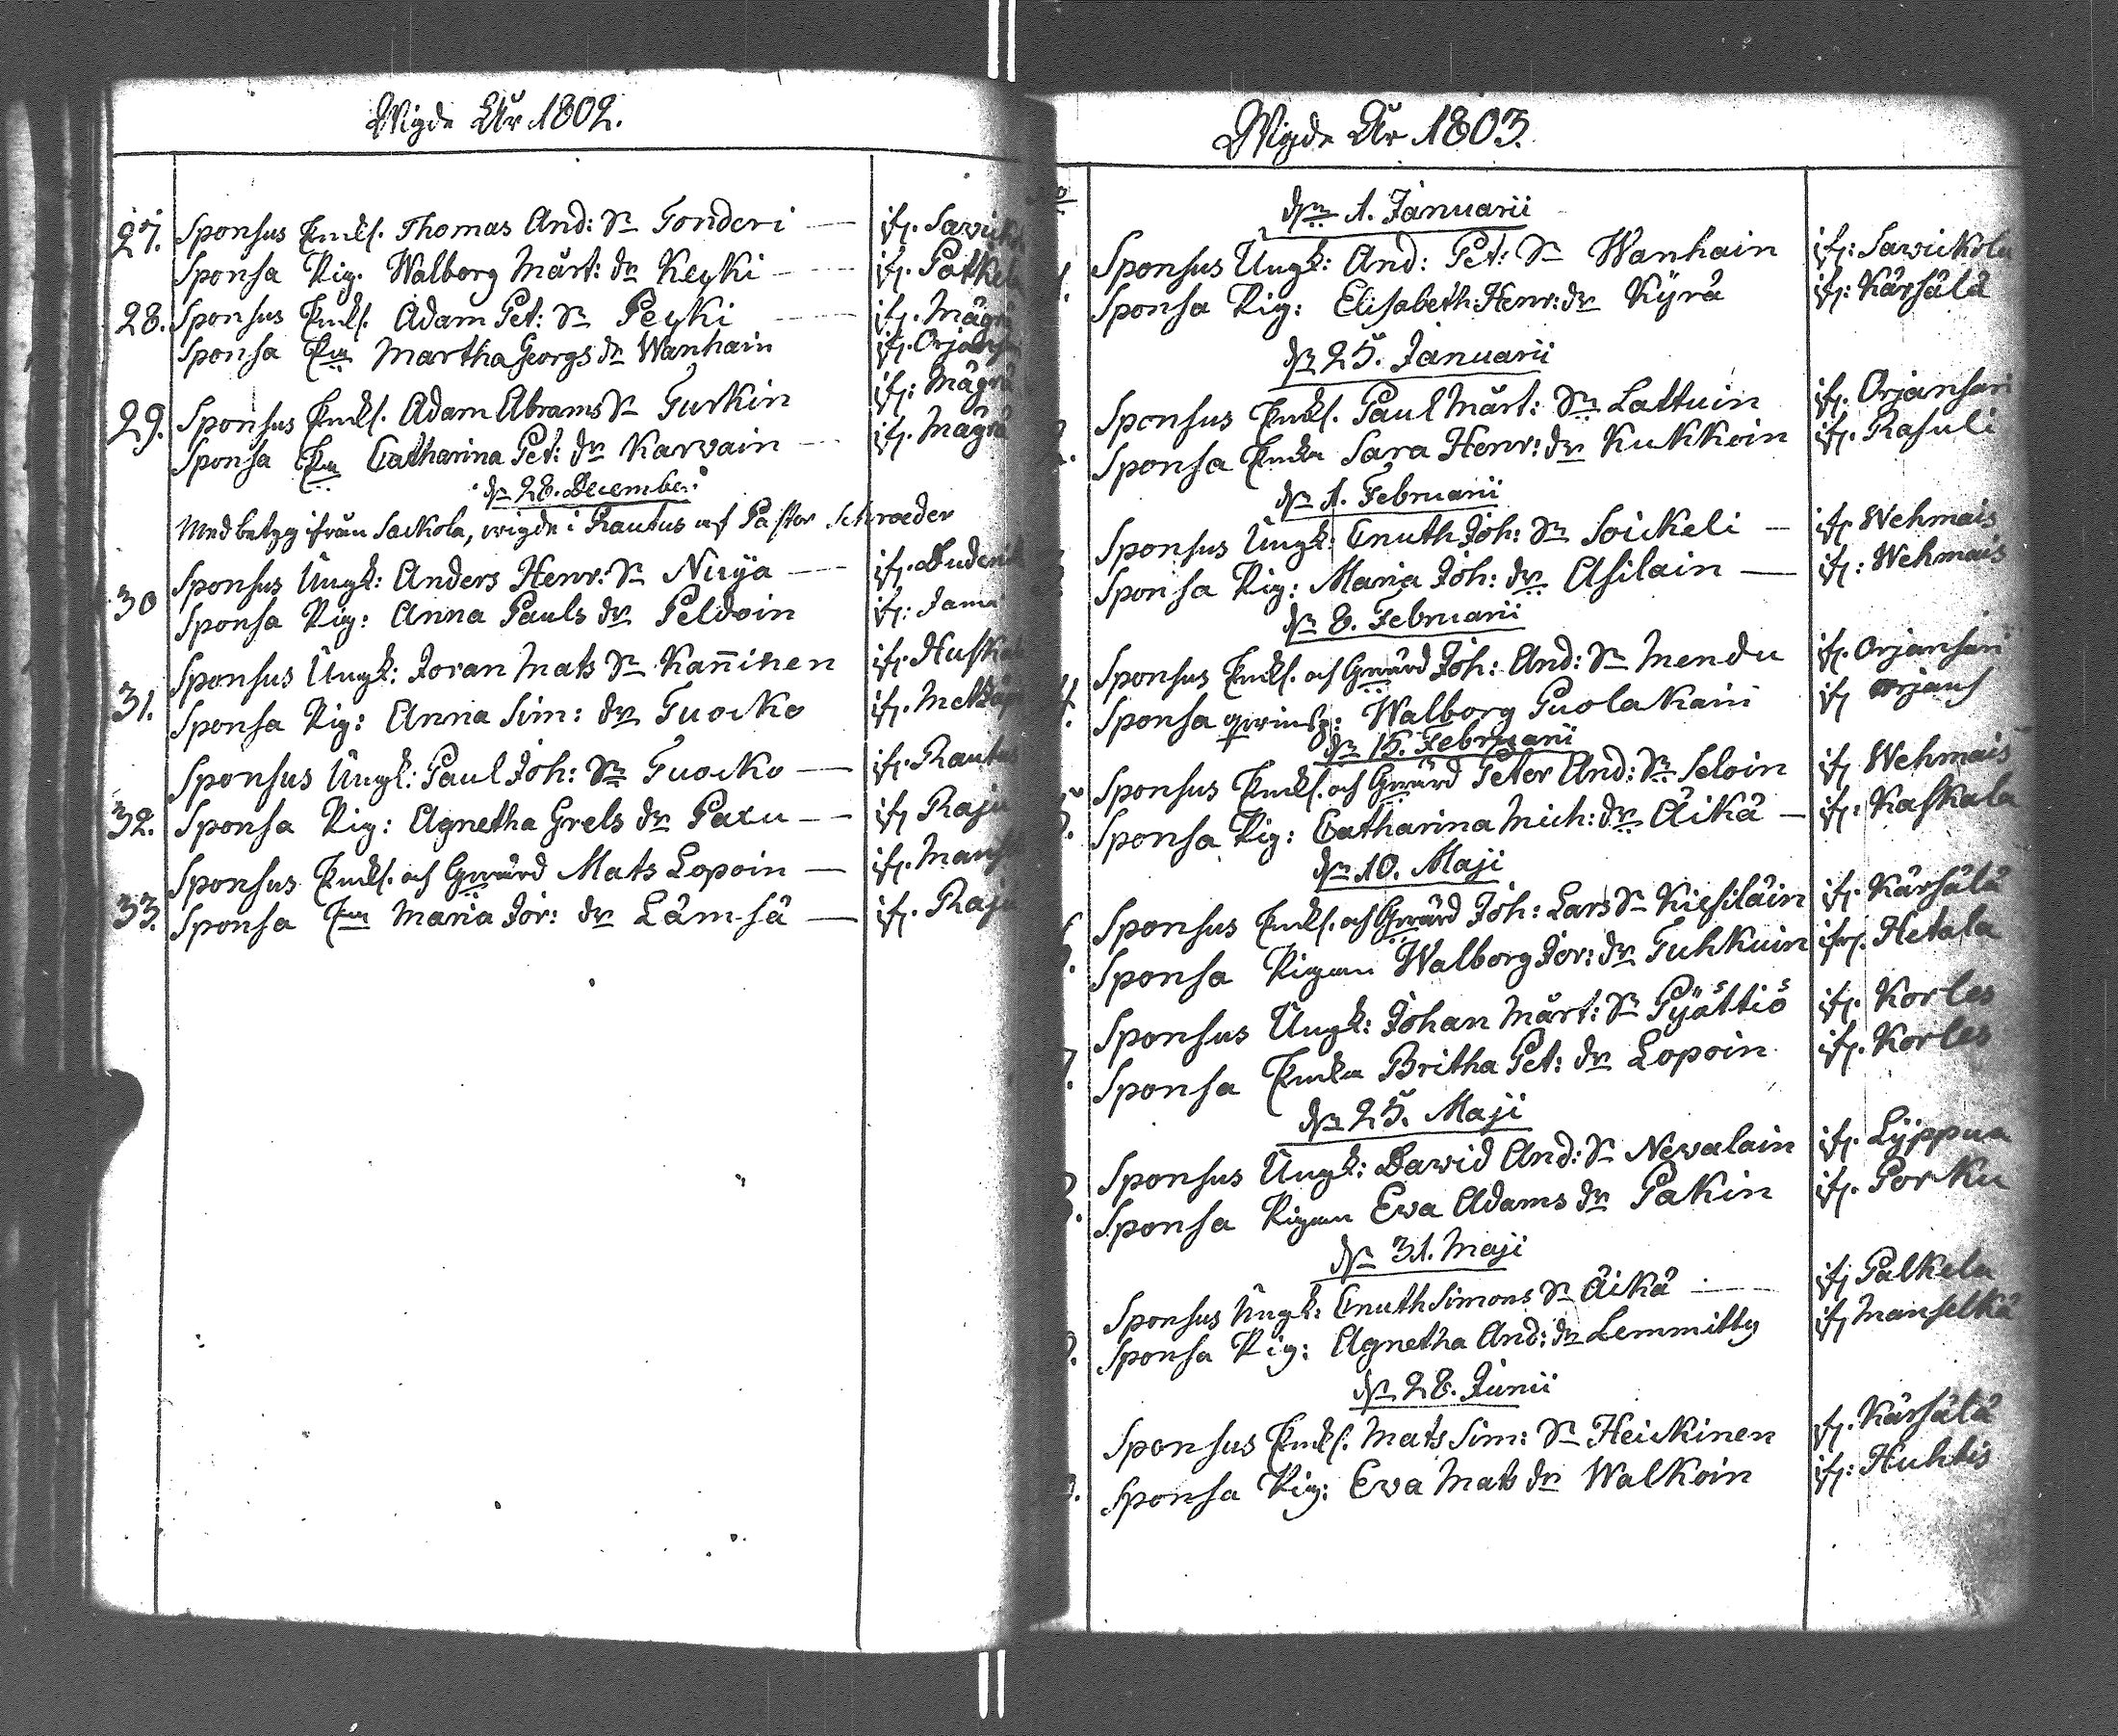 Wigde År 1802.
27. Sponsus Enkl. Thomas And: Sn Tonderi — ifr. Sawick
Sponsa Pig. Walborg Mårt: dr Keyki — ifr. Palkela
28. Sponsus Enkl. Adam Pet: Sn Peyki — ifr. Mägrä
Sponsa Martha Georgs dr Wanhain ifr. Orjans
29. Sponsus Enkl. Adam Abrams Sn Turkin ifr: Mägrä
Sponsa Catharina Pet: dr Karvain — ifr. Mägrä
dn 28. December
Med betyg ifrån Sackola, wigde i Rautus af Pastor Schroeder
30 Sponsus Ungk: Anders Henr: Sn Niiyä — ifr.
Sponsa Pig: Anna Pauls dr Peldoin ifr:
31. Sponsus Ungk: Joran Mats Sn Kan̄inen ifr.
Sponsa Pig: Anna Sim: dr Tuocko ifr.
32. Sponsus Ungk: Paul Joh: Sn Tuocko — ifr. Rautus
Sponsa Pig: Agnetha Grels dr Paxu — ifr Raju
33. Sponsus Enkl. och Gwärd Mats Lopoin — ifr. Mans
Sponsa Maria Jör: dr Lämsä — ifr. Raju
Wigde År 1803.
dn 1. Januarii
Sponsus Ungk: And: Pet: Sn Wanhain ifr: Sawickola
Sponsa Pig: Elisabeth Henr: dr Kyrä ifr: Kärsälä
dn 25. Januarii
Sponsus Enkl. Paul Mårt: Sn Lattuin ifr. Orjansari
Sponsa Enka Sara Henr: dr Kukkoin ifr. Rasuli
dn 1. Februarii
Sponsus Ungk: Cnuth Joh: Sn Soickeli — ifr Wehmais
Sponsa Pig: Maria Joh: dr Asilain — ifr: Wehmais
dn 8. Februarii
Sponsus Enkl. och Gwärd Joh: And: Sn Mendu ifr. Orjansari
Sponsa Walborg Puolakain ifr Orjans
dn 15. Februarii
Sponsus Enkl. och Gwärd Peter And: Sn Seloin ifr Wehmais
Sponsa Pig: Catharina Mich: dr Äikä — ifr: Kaskala
dn 10. Maji
Sponsus Enkl. och Gwärd Joh: Lars Sn Kiesiläin ifr. Kärsälä
Sponsa Pigan Walborg Jör: dr Tuhkuin ifr. Hetala
Sponsus Ungk: Johan Mårt: Sn Pyättiö ifr. Korles
Sponsa Enka Britha Pet: dr Lopoin ifr. Korles
dn 25. Maji
Sponsus Ungk: David And: Sn Nevalain ifr. Lyppua
Sponsa Pigan Eva Adams dr Pakin ifr. Porku
dn 31. Maji
Sponsus Ungk: Cnuth Simons Sn Äikä — ifr Palkela
Sponsa Pig: Agnetha And: dr Lemmitty ifr Manselkä
dn 28. Junii
Sponsus Enkl. Mats Sim: Sn Heickinen ifr. Kärsälä
Sponsa Pig: Eva Mats dr Walkoin ifr: Huhtis